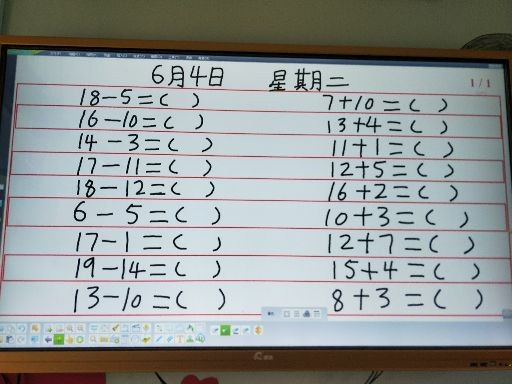 6月4日 星期二
1/1
18-5=( ) 7+10=( )
16-10=( ) 13+4=( )
14-3=( ) 11+1=( )
17-11=( ) 12+5=( )
18-12=( ) 16+2=( )
6-5=( ) 10+3=( )
17-1=( ) 12+7=( )
19-14=( ) 15+4=( )
13-10=( ) 8+3=( )